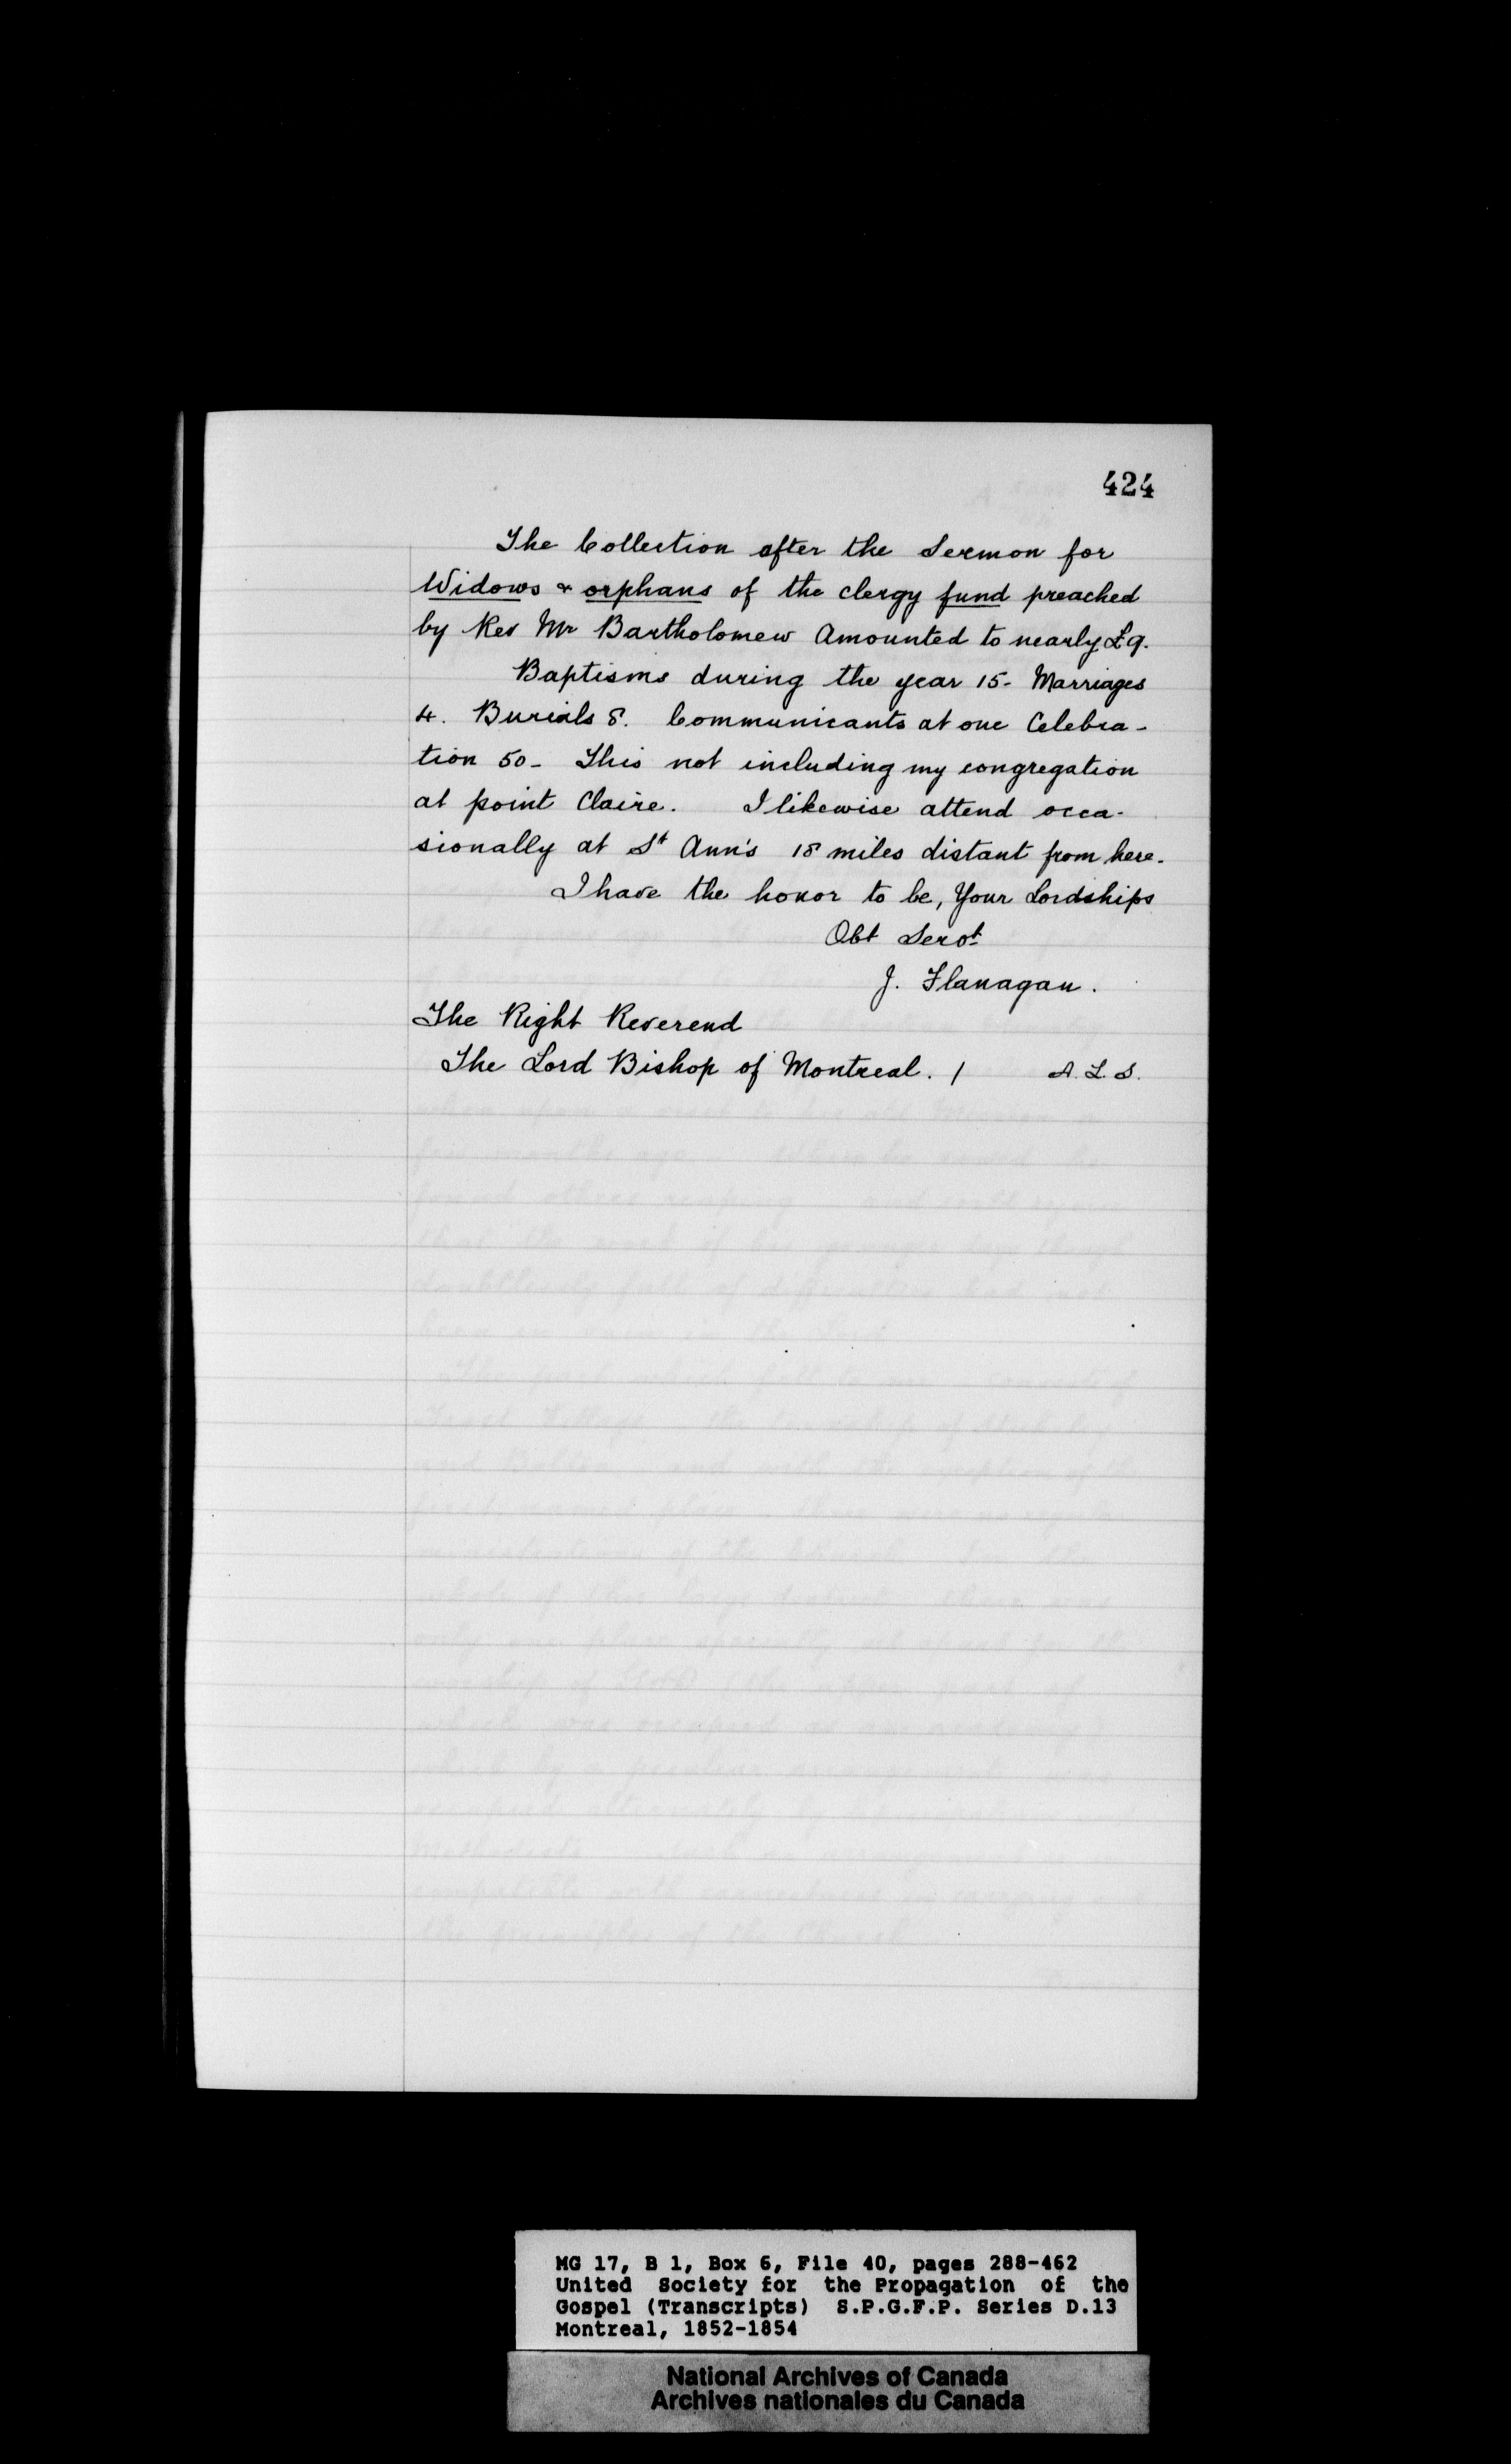 424
The Collection after the Sermon for
Widows & orphans of the clergy fund preached
by Rev Mr Bartholomew Amounted to nearly £9.
Baptisms during the year 15- Marriages
4. Burials 8. Communicants at one Celebra-
tion 50- This not including my congregation
at point Claire. I likewise attend occa-
sionally at St Ann's 18 miles distant from here.
I have the honor to be, Your Lordships
Obt Servt
J. Flanagan.
The Right Reverend
The Lord Bishop of Montreal. / A. L. S.
MG 17, B 1, Box 6, File 40, pages 288-462
United Society for the Propagation of the
Gospel (Transcripts) S.P.G.F.P. Series D.13
Montreal, 1852-1854
National Archives of Canada
Archives nationales du Canada